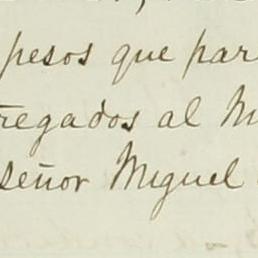 pesos que par
regados al M
Señor Miguel